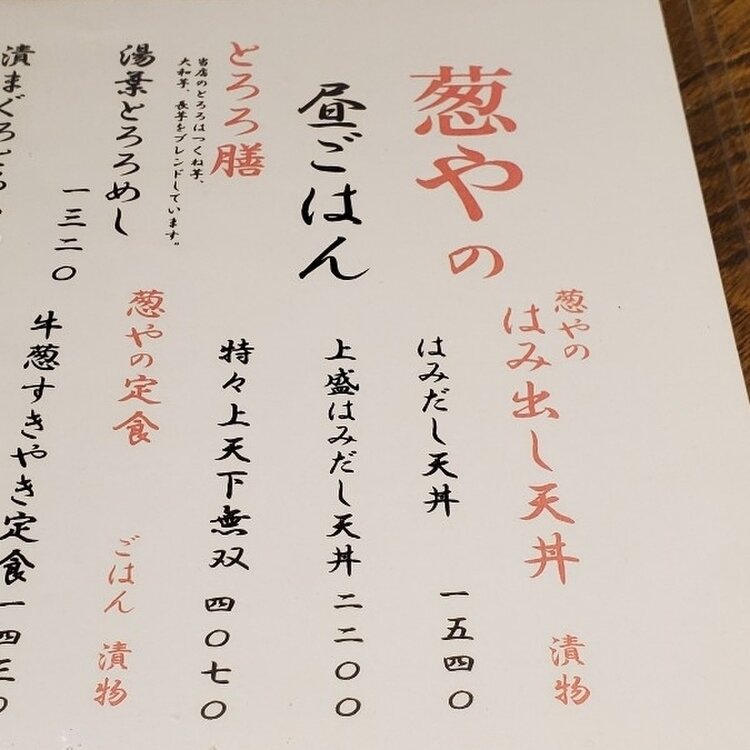 葱やの
昼ごはん
葱やの
はみ出し天丼 漬物
はみだし天丼 一五四〇
上盛はみだし天丼 二二〇〇
特々上天下無双 四〇七〇
とろろ膳
当店のとろろはつくね芋、
大和芋、長芋をブレンドしています。
湯葉とろろめし 一三二〇
漬まぐろとろ
葱やの定食 ごはん 漬物
牛葱すきやき定食 一四三〇